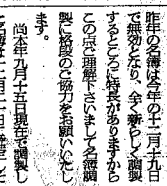 昨年の名簿は今年の十二月十九日
で無効となり、今年新らしく調製
するところに特長がありますから
この点ご理解下さいまして名簿調
製に格段のご協力をお願いいたし
ます。
尚今年九月十五日現在で調製し